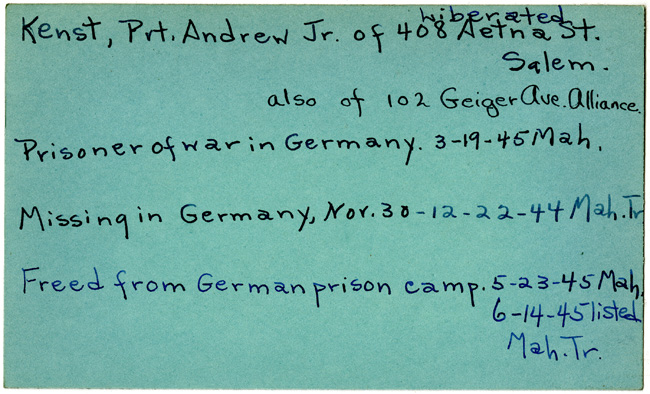 Liberated
Kenst, Prt. Andrew Jr. of 408 Aetna St.
Salem.
also of 102 Geiger Ave. Alliance.
Prisoner of war in Germany. 3-19-45 Mah.
Missing in Germany, Nov. 30-12-22-44 Mah. Tr
Freed from German prison camp. 5-23-45 Mah.
6-14-45 listed
Mah. Tr.